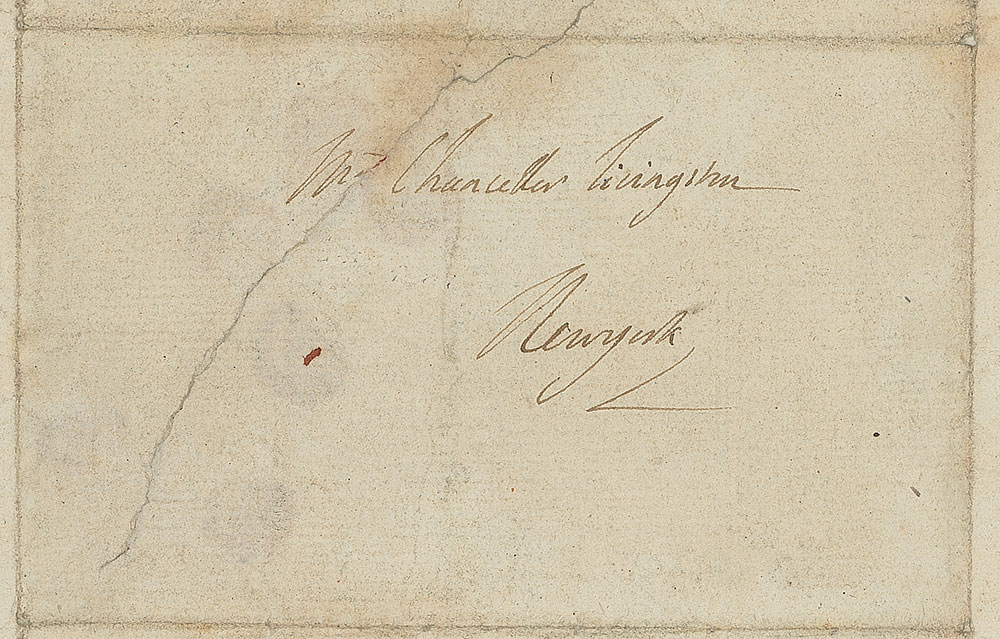 Mr Chancellor Livingston
Newyork